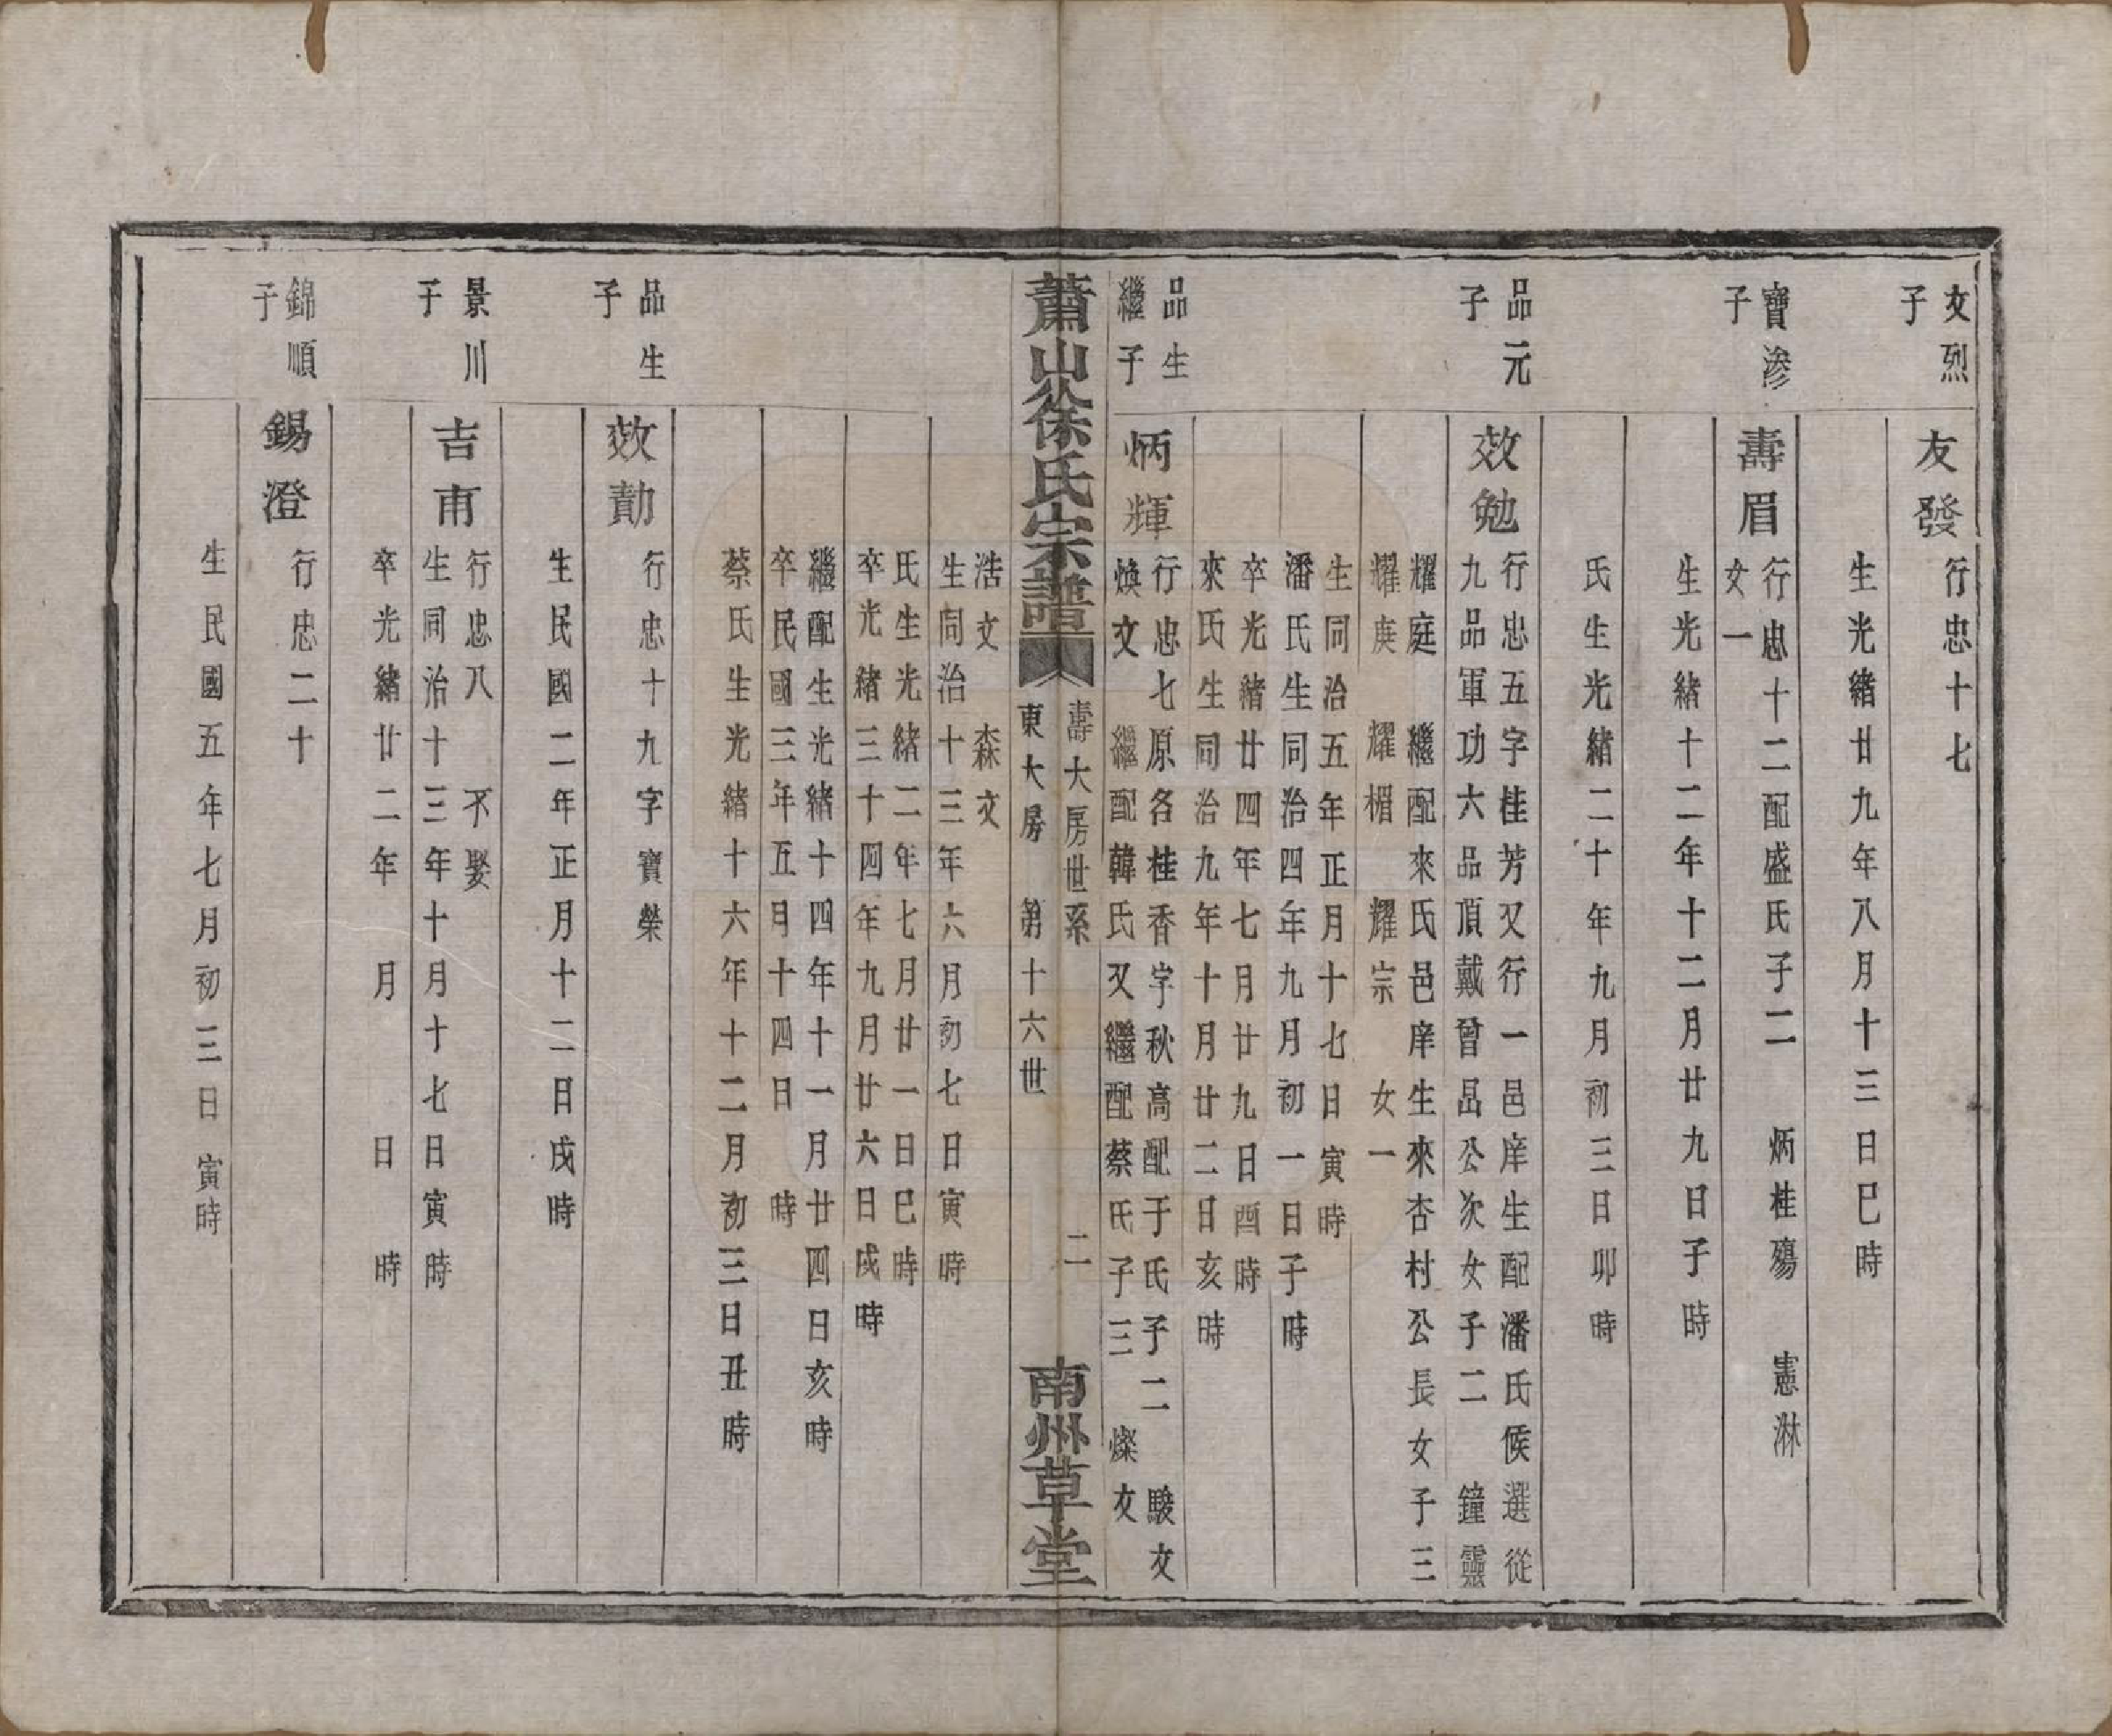 文烈
子
友發
行忠十七
生光緒廿九年八月十三日巳時
寶滲
子
壽眉
行忠十二配盛氏子二　炳桂殤　憲淋
女一
生光緒十二年十二月廿九日子時
氏生光緒二十年九月初三日卯時
品元
子
效勉
行忠五字桂芳又行一邑庠生配潘氏候選從
九品軍功六品頂戴曾昌公次女子二　鐘靈
耀庭　繼配來氏邑庠生來杏村公長女子三
耀庚　耀楣　耀宗　女一
生同治五年正月十七日寅時
潘氏生同治四年九月初一日子時
卒光緒廿四年七月廿九日酉時
來氏生同治九年十月廿二日亥時
品生
繼子
炳輝
行忠七原名桂香字秋高配于氏子二　駿文
煥文　繼配韓氏又繼配蔡氏子三　燦文
蕭山徐氏宗譜
壽大房世系
東大房　第十六世
二
南州草堂
浩文　森文
生同治十三年六月初七日寅時
氏生光緒二年七月廿一日巳時
卒光緒三十四年九月廿六日戌時
繼配生光緒十四年十一月廿四日亥時
卒民國三年五月十四日　時
蔡氏生光緒十六年十二月初三日丑時
品生
子
效勣
行忠十九字寶榮
生民國二年正月十二日戌時
景川
子
吉甫
行忠八　不娶
生同治十三年十月十七日寅時
卒光緒廿二年　月　　日　時
錦順
子
錫澄
行忠二十
生民國五年七月初三日寅時